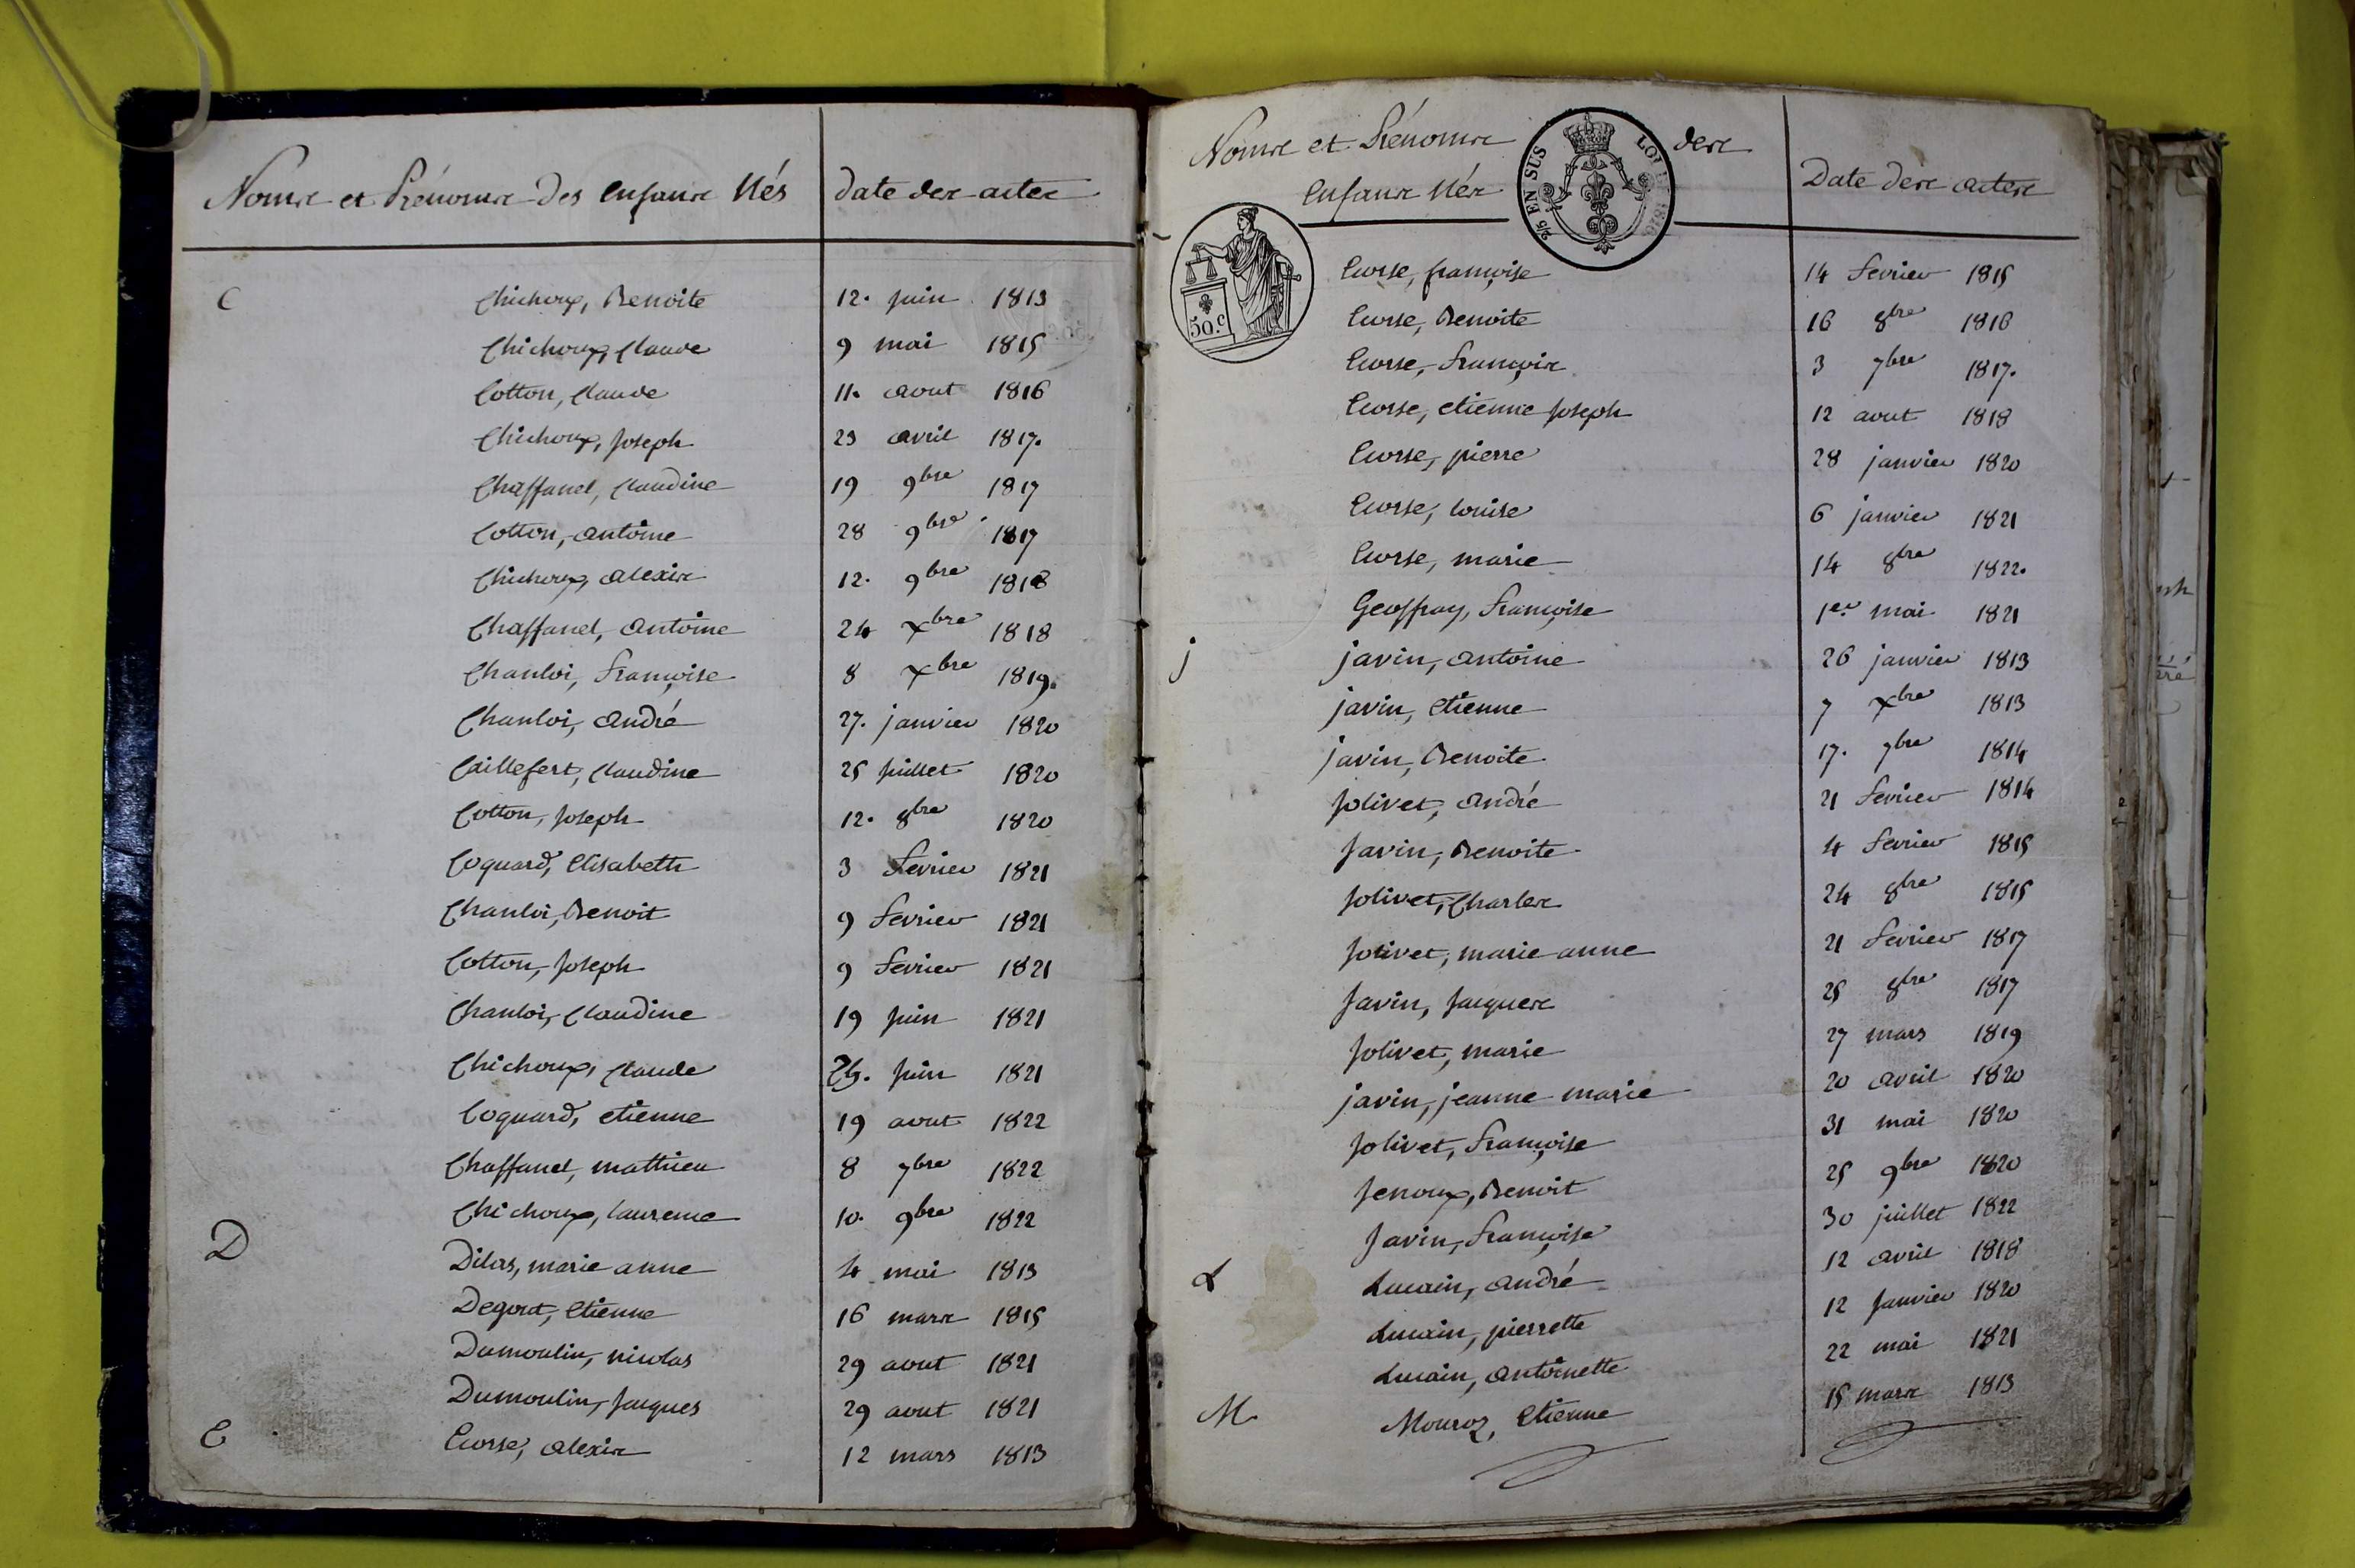 Noms et Prénoms Des Enfans Nés
date des actes
C
Chichoux, Benoite 12. juin 1813
Chichoux, Claude 9 mai 1815
Cotton, Claude 11. aout 1816
Chichoux, Joseph 23 avril 1817.
Chaffanel, Claudine 19 9bre 1817
Cotton, antoine 28 9bre 1817
Chichoux, alexis 12. 9bre 1818
Chaffanel, antoine 24 Xbre 1818
Chanloi, françoise 8 Xbre 1819.
Chanloi, andré 27. janvier 1820
Caillefert, Claudine 25 juillet 1820
Cotton, Joseph 12. 8bre 1820
Coquard, Elisabeth 3 fevrier 1821
Chanloi, Benoit 9 fevrier 1821
Cotton, Joseph 9 fevrier 1821
Chanloi, Claudine 19 juin 1821
Chichoux, Claude 25. juin 1821
Coquard, etienne 19 aout 1822
Chaffanel, mathieu 8 7bre 1822
Chichoux, laurence 10. 9bre 1822
D
Dilas, marie anne 4 mai 1813
Degout, Etienne 16 mars 1815
Dumoulin, nicolas 29 aout 1821
Dumoulin, Jacques 29 aout 1821
E
Eurse, alexis 12 mars 1813
Noms et Prénoms des
Enfans Nés
Date des actes
EN SUS
50.c
Eurse, françoise 14 fevrier 1815
Eurse, Benoite 16 8bre 1816
Eurse, françois 3 7bre 1817.
Eurse, etienne Joseph 12 aout 1818
Eurse, pierre 28 janvier 1820
Eurse, louise 6 janvier 1821
Eurse, marie 14 8bre 1822.
Geoffray, françoise 1er mai 1821
j
javin, antoine 26 janvier 1813
javin, Etienne 7 Xbre 1813
javin, Benoite 17. 7bre 1814
Jolivet, andré 21 fevrier 1814
Javin, Benoite 4 fevrier 1815
Jolivet, Charles 24 8bre 1815
Jolivet, marie anne 21 fevrier 1817
Javin, Jacques 25 8bre 1817
Jolivet, marie 27 mars 1819
javin, jeanne marie 20 avril 1820
Jolivet, françoise 31 mai 1820
Jenoux, Benoit 25 9bre 1820
Javin, françoise 30 juillet 1822
L
Lucain, andré 12 avril 1818
Lucain, pierrette 12 Janvier 1820
Lucain, antoinette 22 mai 1821
M
Mouroz, Etienne 15 mars 1813